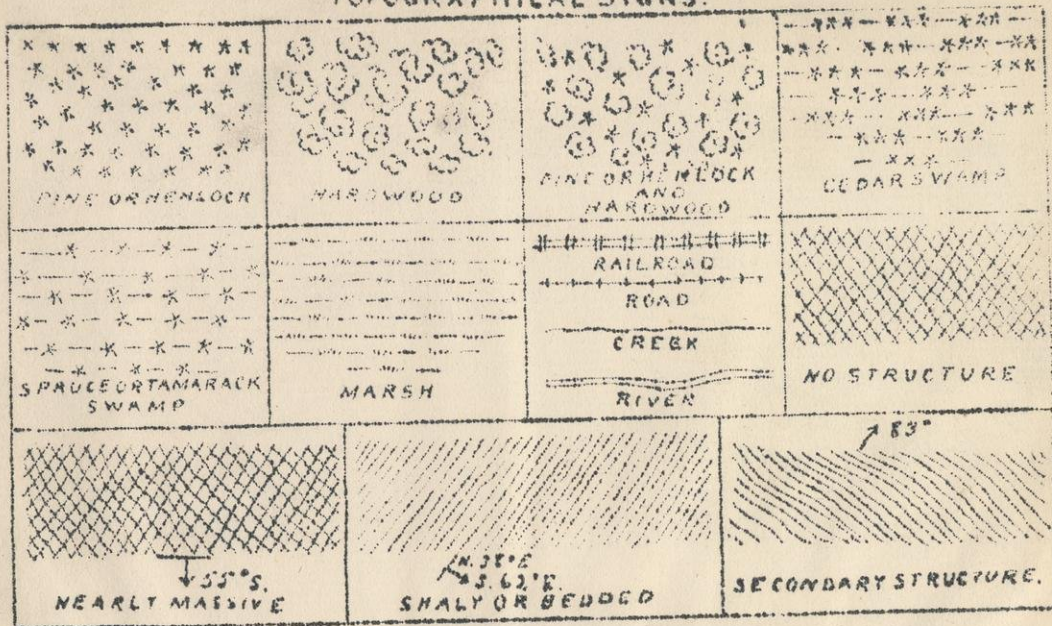 TOPOGRAPHICAL SIGNS.
PINE OR HEMLOCK
HARDWOOD
PINE OR HEMLOCK
AND
HARDWOOD
CEDAR SWAMP
SPRUCE OR TAMARACK
SWAMP
MARSH
RAILROAD
ROAD
CREEK
RIVER
NO STRUCTURE
55° S.
NEARLY MASSIVE
N. 38° E
S. 62° E.
SHALY OR BEDDED
83°
SECONDARY STRUCTURE.